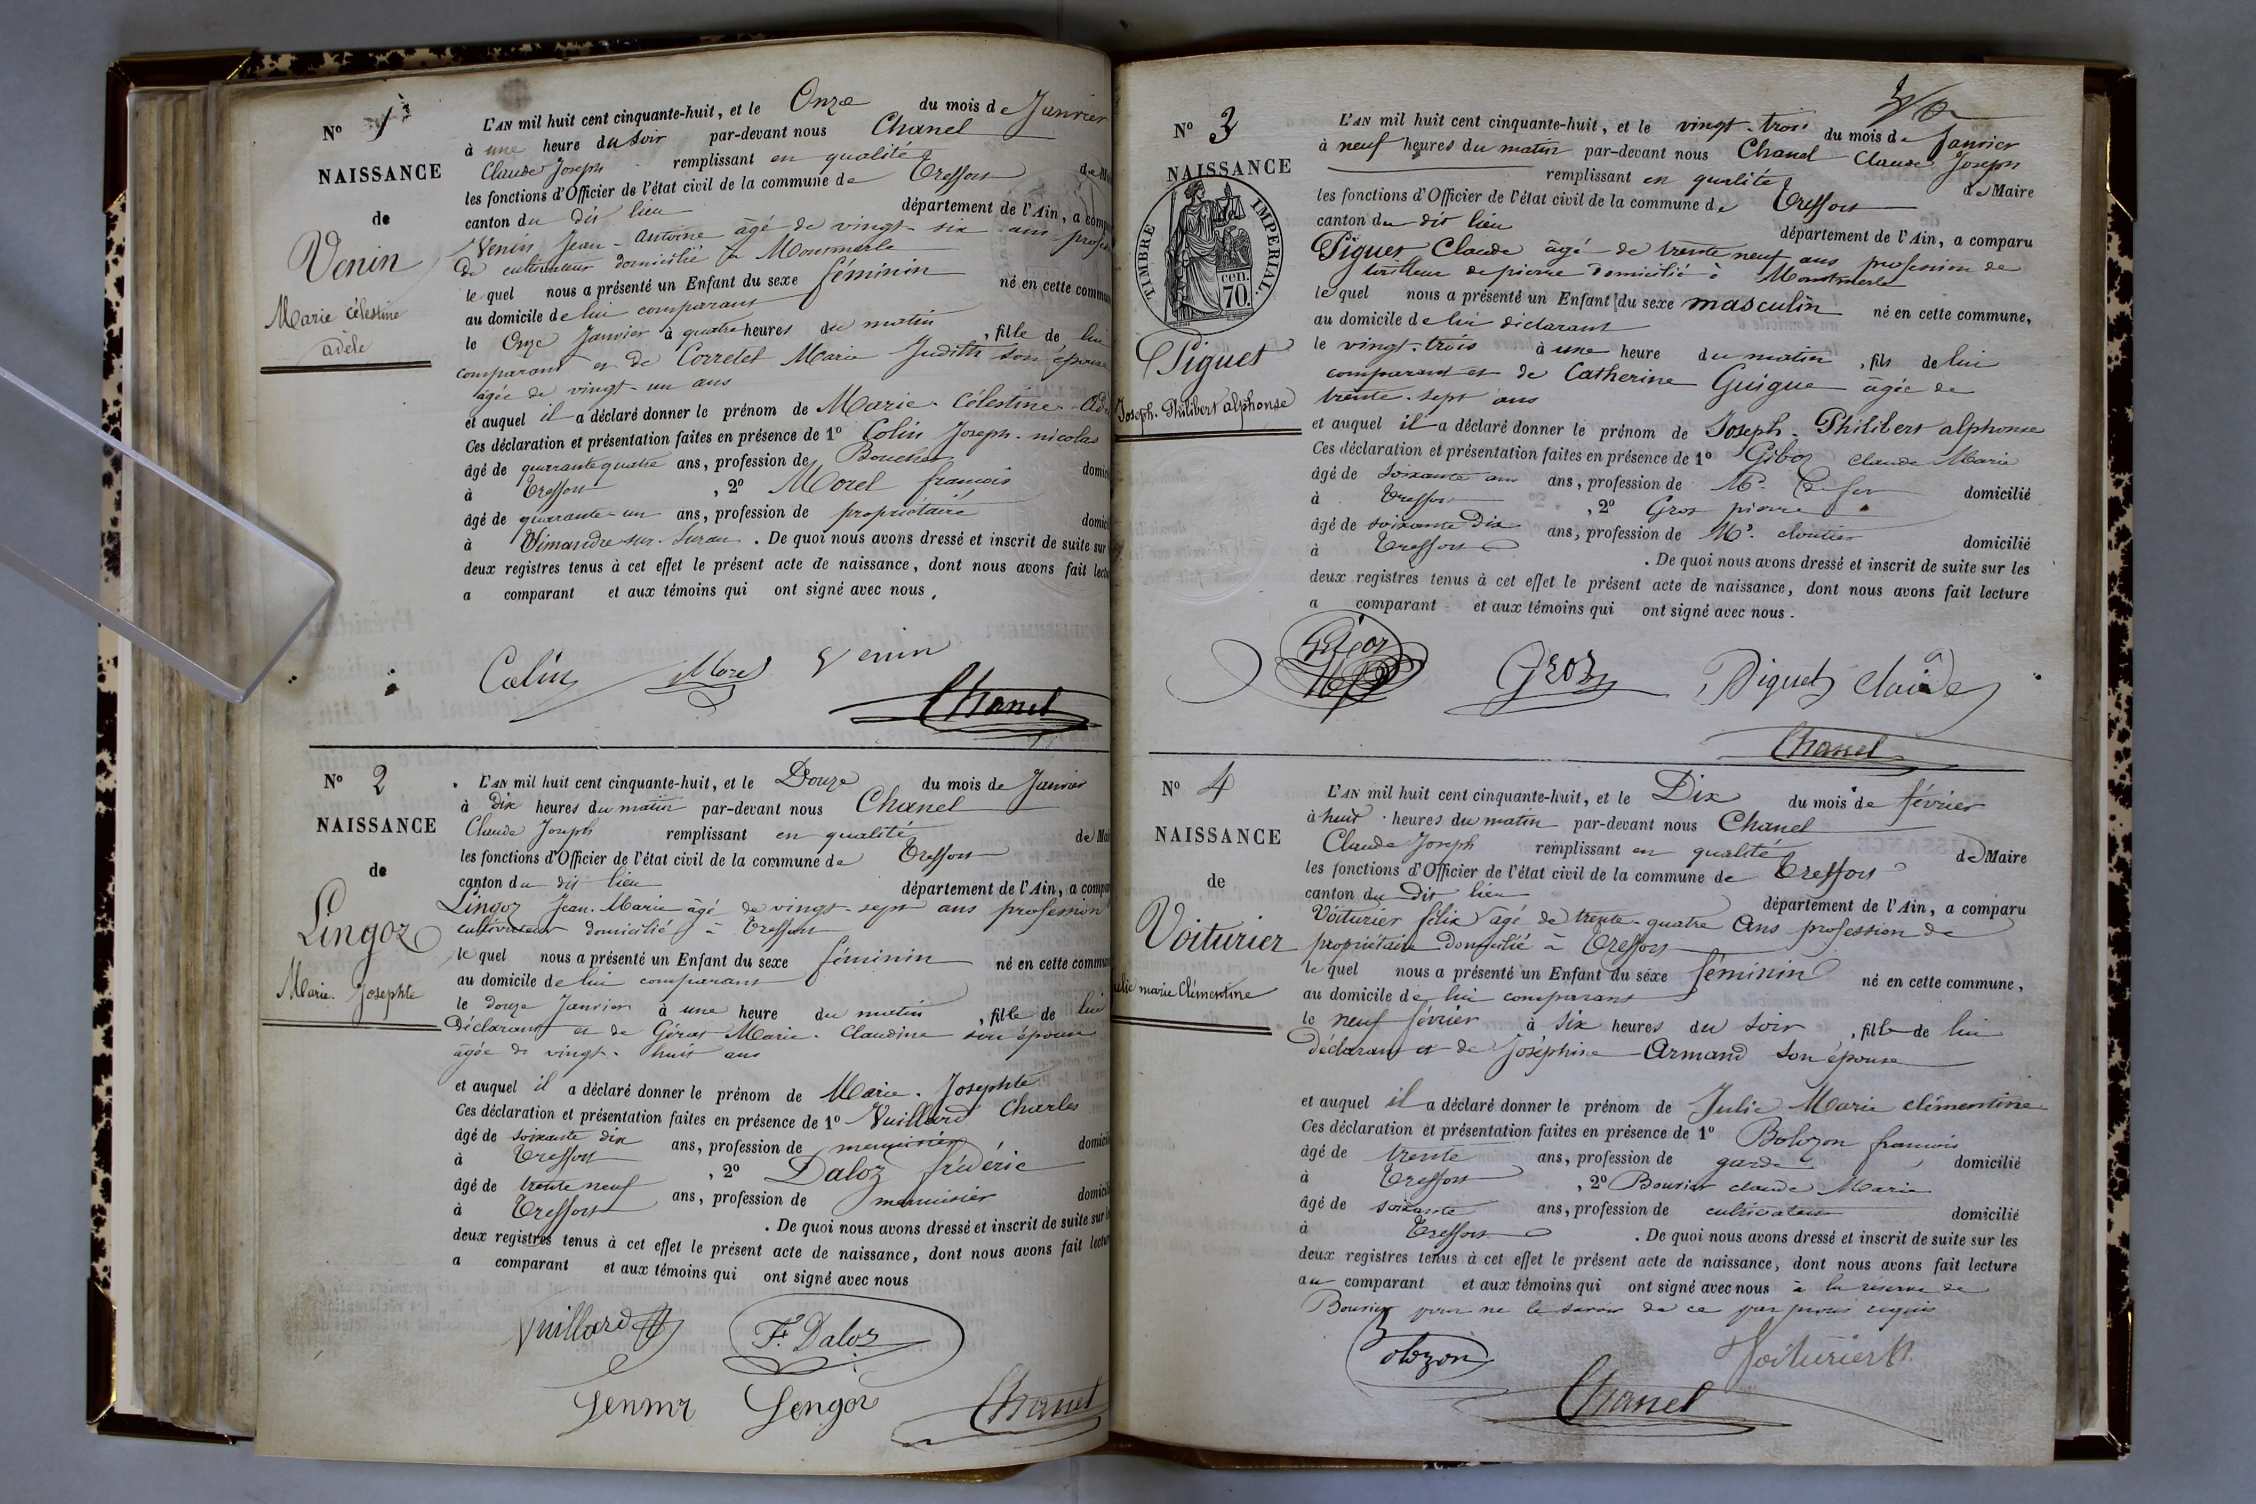 N° 1
NAISSANCE
de
Venin
Marie Célestine
adèle
L'AN mil huit cent cinquante-huit, et le Onze du mois de Janvier
à une heure du soir par-devant nous Chanel
Claude Joseph remplissant en qualité de
les fonctions d'Officier de l'état civil de la commune de Treffort
canton du dit lieu département de l'Ain, a
Venin Jean-Antoine âgé de vingt-six ans
de cultivateur domicilié à Montmerle
le quel nous a présenté un Enfant du sexe féminin né en cette
au domicile de lui comparant
le Onze Janvier à quatre heures du matin, fille de lui
comparant et de Corretel Marie Judith son épouse
âgée de vingt-un ans
et auquel il a déclaré donner le prénom de Marie-Célestine-
Ces déclaration et présentation faites en présence de 1° Colin Joseph-nicolas
âgé de quarante quatre ans, profession de Boucher
à Treffort, 2° Morel francois
âgé de quarante-un ans, profession de propriétaire
à Simandre-sur-Suran. De quoi nous avons dressé et inscrit de suite sur
deux registres tenus à cet effet le présent acte de naissance, dont nous avons fait
a comparant et aux témoins qui ont signé avec nous,
Colin Morel Venin
Chanel
N° 2
NAISSANCE
de
Lingoz
Marie-Josephte
L'AN mil huit cent cinquante-huit, et le Douze du mois de Janvier
à Dix heures du matin par-devant nous Chanel
Claude Joseph remplissant en qualité de
les fonctions d'Officier de l'état civil de la commune de Treffort
canton du dit lieu département de l'Ain, a
Lingoz Jean-Marie âgé de vingt-sept ans profession
cultivateur domicilié à Treffort
le quel nous a présenté un Enfant du sexe féminin né en cette
au domicile de lui comparant
le douze Janvier à une heure du matin, fille de lui
Déclarant et de Marie-Claudine son épouse
âgée de vingt-huit ans
et auquel il a déclaré donner le prénom de Marie-Josephte
Ces déclaration et présentation faites en présence de 1° Vuillard Charles
âgé de soixante dix ans, profession de menuisier
à Treffort, 2° Daloz frédéric
âgé de trente neuf ans, profession de menuisier
à Treffort. De quoi nous avons dressé et inscrit de suite sur
deux registres tenus à cet effet le présent acte de naissance, dont nous avons fait
a comparant et aux témoins qui ont signé avec nous
Vuillard F. Daloz
Lengoz Chanel
N° 3
NAISSANCE
TIMBRE IMPERIAL.
cen.
70.
Piguet
Joseph-Philibert alphonse
L'AN mil huit cent cinquante-huit, et le vingt-trois du mois de Janvier
à neuf heures du matin par-devant nous Chanel Claude Joseph
remplissant en qualité de Maire
les fonctions d'Officier de l'état civil de la commune de Treffort
canton du dit lieu département de l'Ain, a comparu
Piguet Claude âgé de trente neuf ans profession de
tailleur de pierre domicilié à Montmerle
le quel nous a présenté un Enfant du sexe masculin né en cette commune,
au domicile de lui déclarant
le vingt-trois à une heure du matin, fils de lui
comparant et de Catherine Guigue âgée de
trente-sept ans
et auquel il a déclaré donner le prénom de Joseph-Philibert alphonse
Ces déclaration et présentation faites en présence de 1° Claude Marie
âgé de soixante ans ans, profession de domicilié
à Treffort, 2° Gros pierre
âgé de soixante Dix ans, profession de Md. cloutier domicilié
à Treffort. De quoi nous avons dressé et inscrit de suite sur les
deux registres tenus à cet effet le présent acte de naissance, dont nous avons fait lecture
a comparant et aux témoins qui ont signé avec nous.
Gros Piguet claude
Chanel
N° 4
NAISSANCE
de
Voiturier
marie Clémentine
L'AN mil huit cent cinquante-huit, et le Dix du mois de février
à huit heures du matin par-devant nous Chanel
Claude Joseph remplissant en qualité de Maire
les fonctions d'Officier de l'état civil de la commune de Treffort
canton du Dit lieu département de l'Ain, a comparu
Voiturier félix âgé de trente-quatre ans profession de
propriétaire domicilié à Treffort
le quel nous a présenté un Enfant du sexe féminin né en cette commune,
au domicile de lui comparant
le neuf février à six heures du soir, fille de lui
déclarant et de Joséphine Armand son épouse
et auquel il a déclaré donner le prénom de Julie Marie clémentine
Ces déclaration et présentation faites en présence de 1° Bolozon francois
âgé de trente ans, profession de garde domicilié
à Treffort, 2° Bouvier claude Marie
âgé de soixante ans, profession de cultivateur domicilié
à Treffort. De quoi nous avons dressé et inscrit de suite sur les
deux registres tenus à cet effet le présent acte de naissance, dont nous avons fait lecture
au comparant et aux témoins qui ont signé avec nous à la réserve de
Bouvier pour ne le savoir de ce par nous requis
Bolozon Voiturier
Chanel